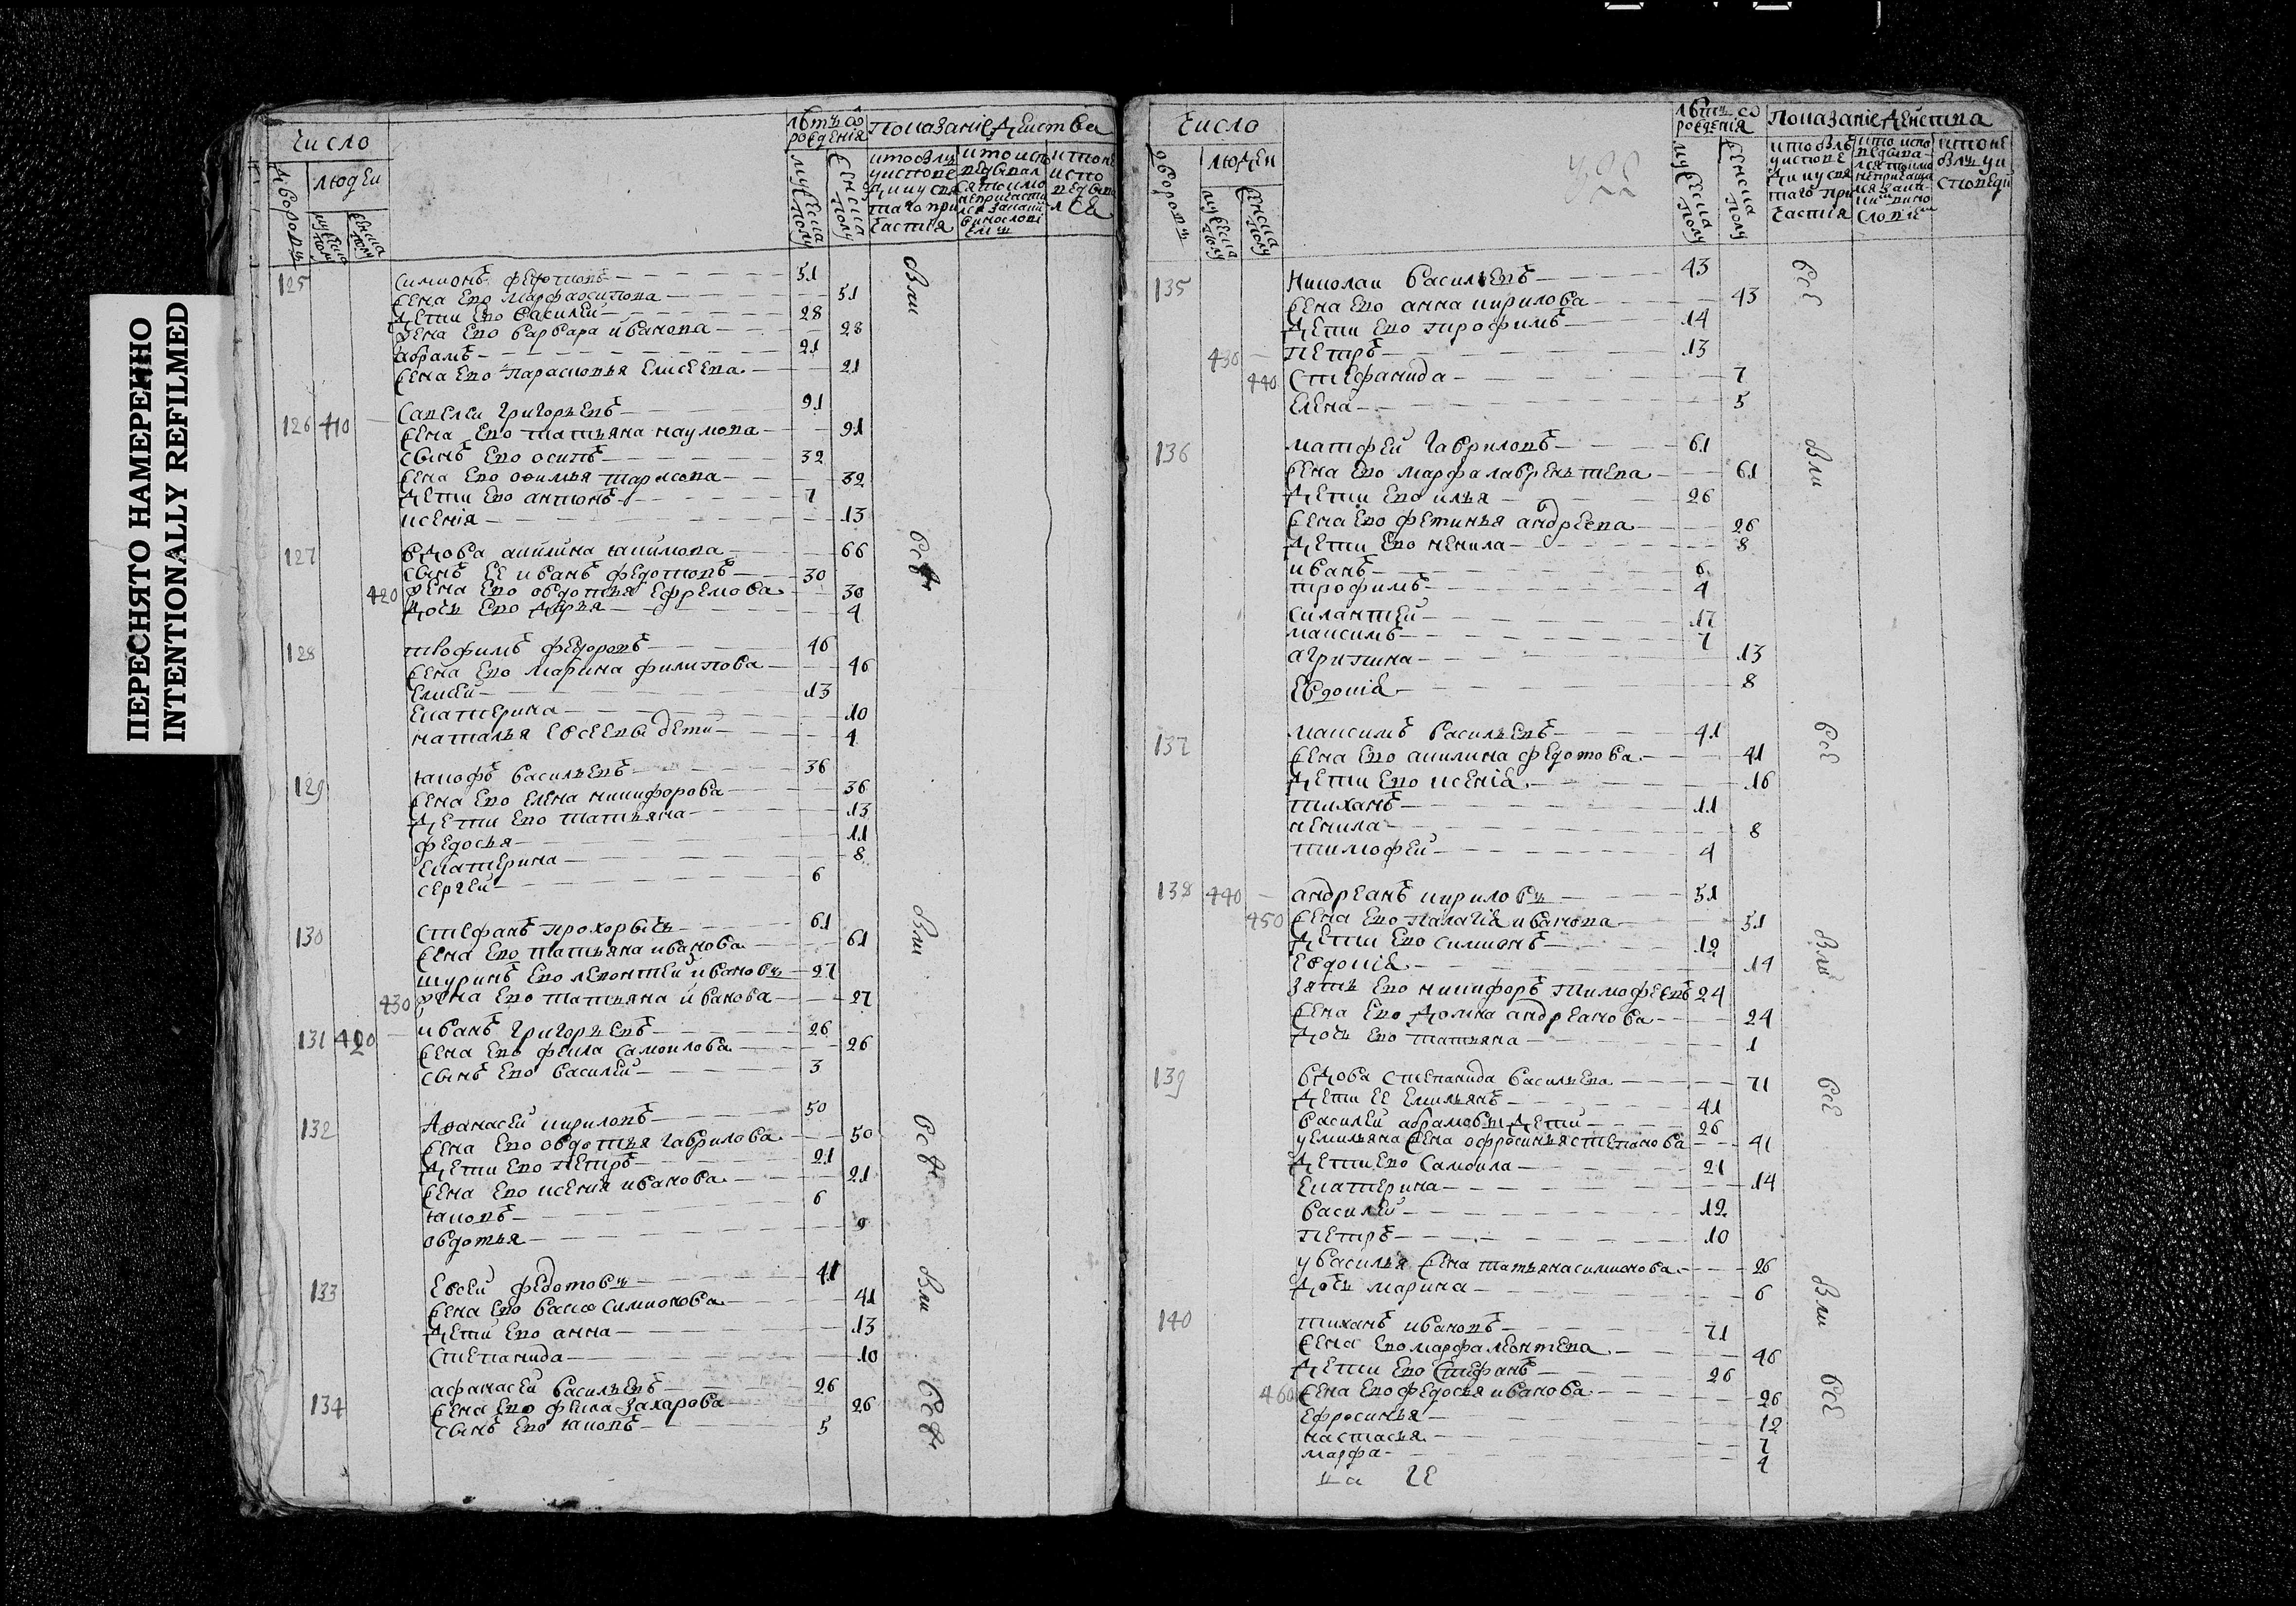 ПЕРЕСНЯТО НАМЕРЕННО
INTENTIONALLY REFILMED
число
дворовъ
людеи
мужеска полу
женска полу
лѣтъ ѿ рождения
мужеска полу
женска полу
показаніе действа
125 симионъ федотовъ 51
жена ево марфа осипова 51
дети ево василей 28
жена ево варвара иванова 28
абрамъ 21
жена ево парасковья елисеева 21
вли
126 410 савелеи григорьевъ 91
жена ево татьяна наумова 91
сынъ ево осипъ 32
жена ево офимья тарасова 32
дети ево антонъ 7
ксенія 13
127 вдова акилина якимова 66
сынъ ее иванъ федотовъ 30
420 жена ево овдотья ефремова 30
дочь ево дарья 4
128 трофимъ федоровъ 46
жена ево марина филипова 46
елисей 13
екатерина 10
наталья евсеевы дети 4
129 якофъ васильевъ 36
жена ево елена никифорова 36
дети ево татьяна 13
федосья 11
екатерина 8
сергей 6
130 стефанъ прохорычь 61
жена ево татьяна иванова 61
вли
шуринъ ево левонтей ивановъ 27
430 жена ево татьяна иванова 27
131 420 иванъ григорьевъ 26
жена ево фекла самоилова 26
сынъ ево василей 3
132 афанасей кириловъ 50
жена ево овдотья гаврилова 50
дети ево петръ 21
жена ево ксения иванова 21
яковъ 6
овдотья 9
133 евсей федотовъ 41
жена ево васса симионова 41
вли
дети ево анна 13
степанида 10
134 афанасей васильевъ 26
жена ево фекла захарова 26
сынъ ево яковъ 5
число
дворовъ
людеи
мужеска полу
женска полу
лѣтъ ѿ рождения
мужеска полу
женска полу
показаніе действа
135 николаи васильевъ 43
жена ево анна кирилова 43
дети ево трофимъ 14
430 петръ 13
440 стефанида 7
елена 5
всѣ
136 матфей гавриловъ 61
жена ево марфа лаврентьева 61
вли
дети ево илья 26
жена ево фетинья андреева 26
дети ево ненила 8
иванъ 6
трофимъ 4
силантей 17
максимъ 7
агрипина 13
евдокиа 8
137 максимъ васильевъ 41
жена ево акилина федотова 41
всѣ
дети ево ксениа 16
тиханъ 11
ненила 8
тимофей 4
138 440 андреанъ кириловъ 51
450 жена ево палагиа иванова 51
дети ево симионъ 12
вли
евдокиа 14
зять ево никифоръ тимофеевъ 24
жена ево домна андреанова 24
дочь ево татьяна 1
139 вдова степанида васильева 71
всѣ
дети ее емильянъ 41
василей абрамовы дети 26
у емильяна жена офросинья степанова 41
дети ево самоила 21
екатерина 14
василей 12
петръ 10
у василья жена татьяна симионова 26
дочь марина 6
вли
140 тиханъ ивановъ 71
жена ево марфа леонтева 46
дети ево стефанъ 26
460 жена ево федосья иванова 26
всѣ
ефросинья 12
настасья 7
марфа 4